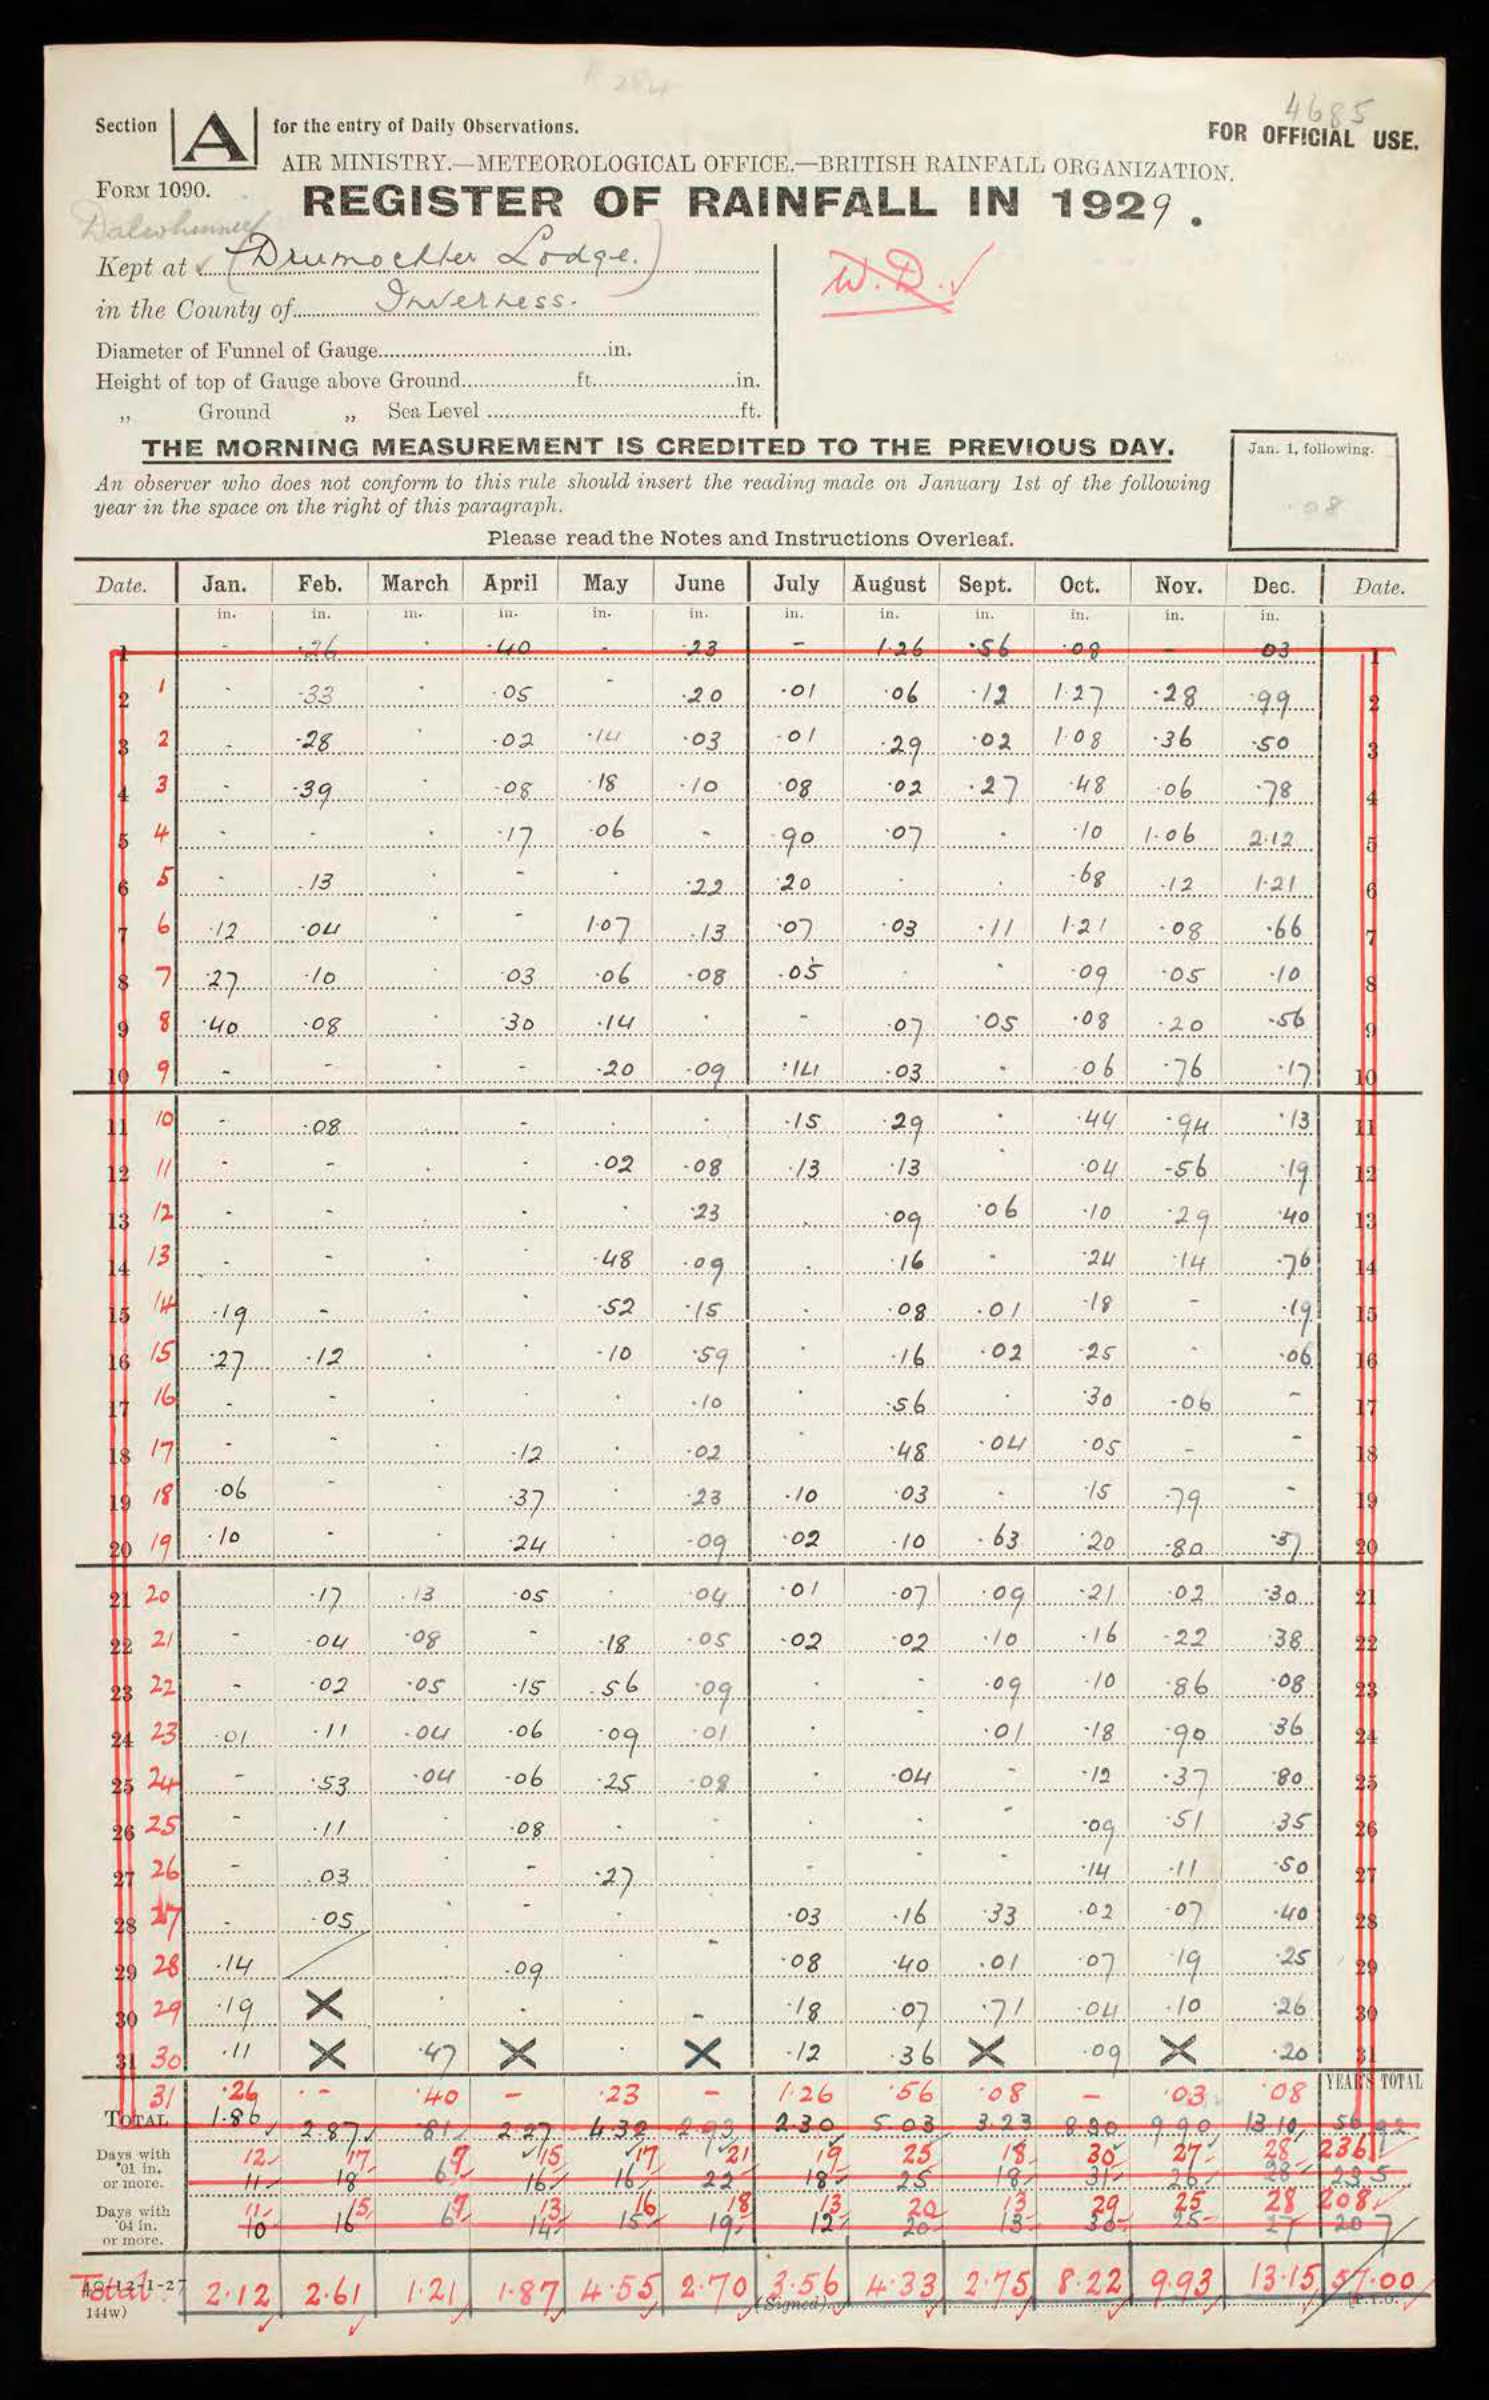 R 284
4685
Section A for the entry of Daily Observations.
FOR OFFICIAL USE.
AIR MINISTRY.—METEOROLOGICAL OFFICE.—BRITISH RAINFALL ORGANIZATION.
FORM 1090.
REGISTER OF RAINFALL IN 1929.
Kept at (Drumochter Lodge.)
W.D.
in the County of Inverness.
Diameter of Funnel of Gauge in.
Height of top of Gauge above Ground ft. in.
„ Ground „ Sea Level ft.
THE MORNING MEASUREMENT IS CREDITED TO THE PREVIOUS DAY.
Jan. 1, following.
·08
An observer who does not conform to this rule should insert the reading made on January 1st of the following
year in the space on the right of this paragraph.
Please read the Notes and Instructions Overleaf.
Date. Jan. Feb. March April May June July August Sept. Oct. Nov. Dec. Date.
in. in. in. in. in. in. in. in. in. in. in. in.
1 - ·26 · ·40 - ·23 - 1·26 ·56 ·08 - 03 1
2 1 · ·33 · ·05 - ·20 ·01 ·06 ·12 1·27 ·28 ·99 2
3 2 - ·28 · ·02 ·14 ·03 ·01 ·29 ·02 1·08 ·36 ·50 3
4 3 - ·39 · ·08 ·18 ·10 ·08 ·02 ·27 ·48 ·06 ·78 4
5 4 - - · ·17 ·06 - ·90 ·07 · ·10 1·06 2·12 5
6 5 - ·13 · - · ·22 ·20 · · ·68 ·12 1·21 6
7 6 ·12 ·04 · - 1·07 ·13 ·07 ·03 ·11 1·21 ·08 ·66 7
8 7 ·27 ·10 · ·03 ·06 ·08 ·05 · · ·09 ·05 ·10 8
9 8 ·40 ·08 · ·30 ·14 · - ·07 ·05 ·08 ·20 ·56 9
10 9 - - · - ·20 ·09 ·14 ·03 · 06 ·76 ·17 10
11 10 - ·08 · - · · ·15 ·29 · ·44 ·94 ·13 11
12 11 - - · · ·02 ·08 ·13 ·13 · ·04 ·56 ·19 12
13 12 - - · · · ·23 · ·09 ·06 ·10 ·29 ·40 13
14 13 - - · · ·48 ·09 · ·16 - ·24 ·14 ·76 14
15 14 ·19 - · · ·52 ·15 · ·08 ·01 ·18 - ·19 15
16 15 ·27 ·12 · · ·10 ·59 · ·16 ·02 ·25 · ·06 16
17 16 - - · · · ·10 · ·56 · ·30 ·06 - 17
18 17 - - · ·12 · ·02 · ·48 ·04 ·05 - - 18
19 18 ·06 - · ·37 · ·23 ·10 ·03 - ·15 ·79 - 19
20 19 ·10 - · ·24 · ·09 ·02 ·10 ·63 ·20 ·80 ·37 20
21 20 ·17 ·13 ·05 · ·04 ·01 ·07 ·09 ·21 ·02 ·30 21
22 21 - ·04 ·08 - ·18 ·05 ·02 ·02 ·10 ·16 ·22 ·38 22
23 22 - ·02 ·05 ·15 ·56 ·09 · - ·09 ·10 ·86 ·08 23
24 23 ·01 ·11 ·04 ·06 ·09 ·01 · - ·01 ·18 ·90 36 24
25 24 - ·53 ·04 ·06 ·25 ·08 · ·04 - ·12 ·37 ·80 25
26 25 - ·11 · ·08 · · · · - ·09 ·51 ·35 26
27 26 - ·03 · - ·27 · - · - ·14 ·11 ·50 27
28 27 - ·05 · - · · ·03 ·16 ·33 ·02 ·07 ·40 28
29 28 ·14 · ·09 · - ·08 ·40 ·01 ·07 19 ·25 29
30 29 ·19 X · · · - ·18 ·07 ·71 ·04 ·10 ·26 30
31 30 ·11 X ·47 X · X ·12 ·36 X ·09 X ·20 31
31 ·26 - ·40 - ·23 - 1·26 ·56 ·08 - ·03 ·08 YEAR'S TOTAL
TOTAL 1·86 2·87 ·81 2·27 4·32 2·93 2·30 5·03 3·23 8·30 9·90 13·10 56·92
Days with 12 17 7 15 17 21 19 25 18 30 27 28 236
·01 in.
or more. 11 18 6 16 16 22 18 25 18 31 26 28 235
Days with 11 15 7 13 16 18 13 20 13 29 25 28 208
·04 in. 10 16 6 14 15 19 12 20 13 30 25 27 207
or more.
Total 2·12 2·61 1·21 1·87 4·55 2·70 3·56 4·33 2·75 8·22 9·93 13·15 57·00
144w) (Signed) [P.T.O.